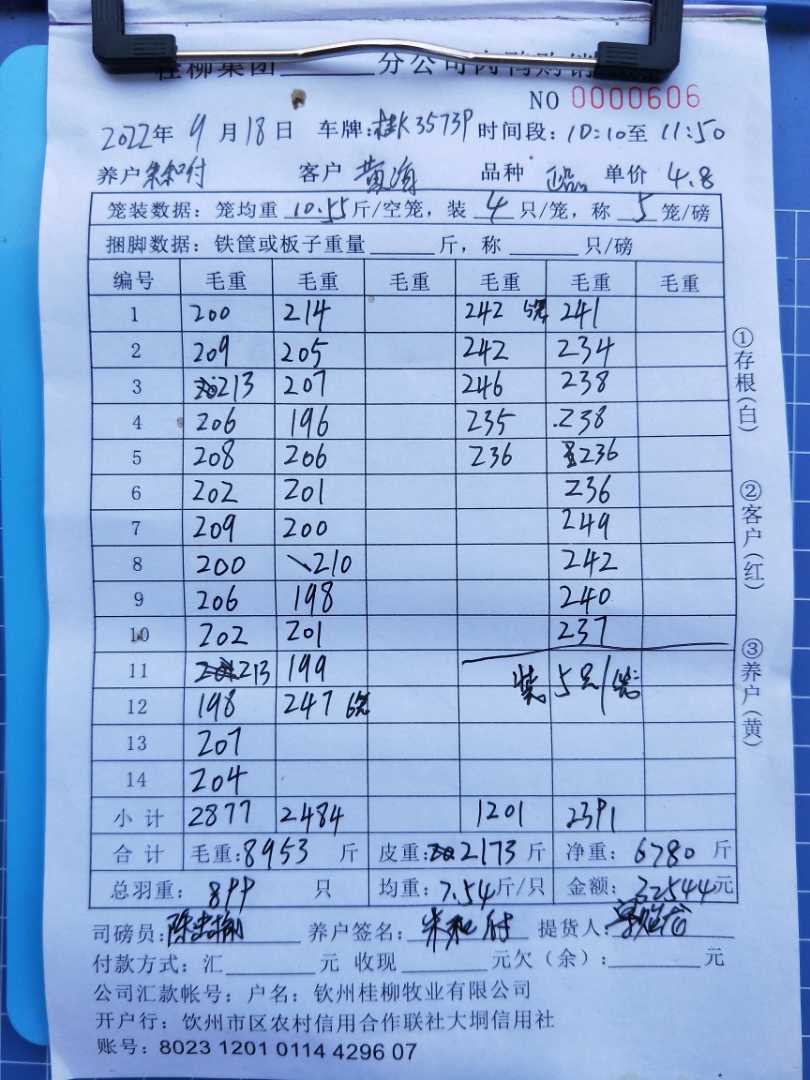 桂柳集团 分公司肉鸭购销
NO 0000606
2022年 9月18日 车牌:桂K3573P 时间段:10:10至11:50
养户 朱和付 客户 黄海 品种 单价 4.8
笼装数据:笼均重 10.55 斤/空笼,装 4 只/笼,称 5 笼/磅
捆脚数据:铁筐或板子重量 斤,称 只/磅
编号 毛重 毛重 毛重 毛重 毛重 毛重
1 200 214 242 5笼 241
2 209 205 242 234
3 213 207 246 238
4 206 196 235 238
5 208 206 236 236
6 202 201 236
7 209 200 249
8 200 210 242
9 206 198 240
10 202 201 237
11 213 199 装5只/笼
12 198 247 6笼
13 207
14 204
小计 2877 2484 1201 2391
合计 毛重:8953 斤 皮重:2173 斤 净重:6780 斤
总羽重: 899 只 均重:7.54斤/只 金额:32544元
司磅员: 养户签名:朱和付 提货人:
付款方式:汇 元 收现 元欠(余): 元
公司汇款帐号:户名:钦州桂柳牧业有限公司
开户行:钦州市区农村信用合作联社大垌信用社
账号:8023 1201 0114 4296 07
①存根(白)
②客户(红)
③养户(黄)